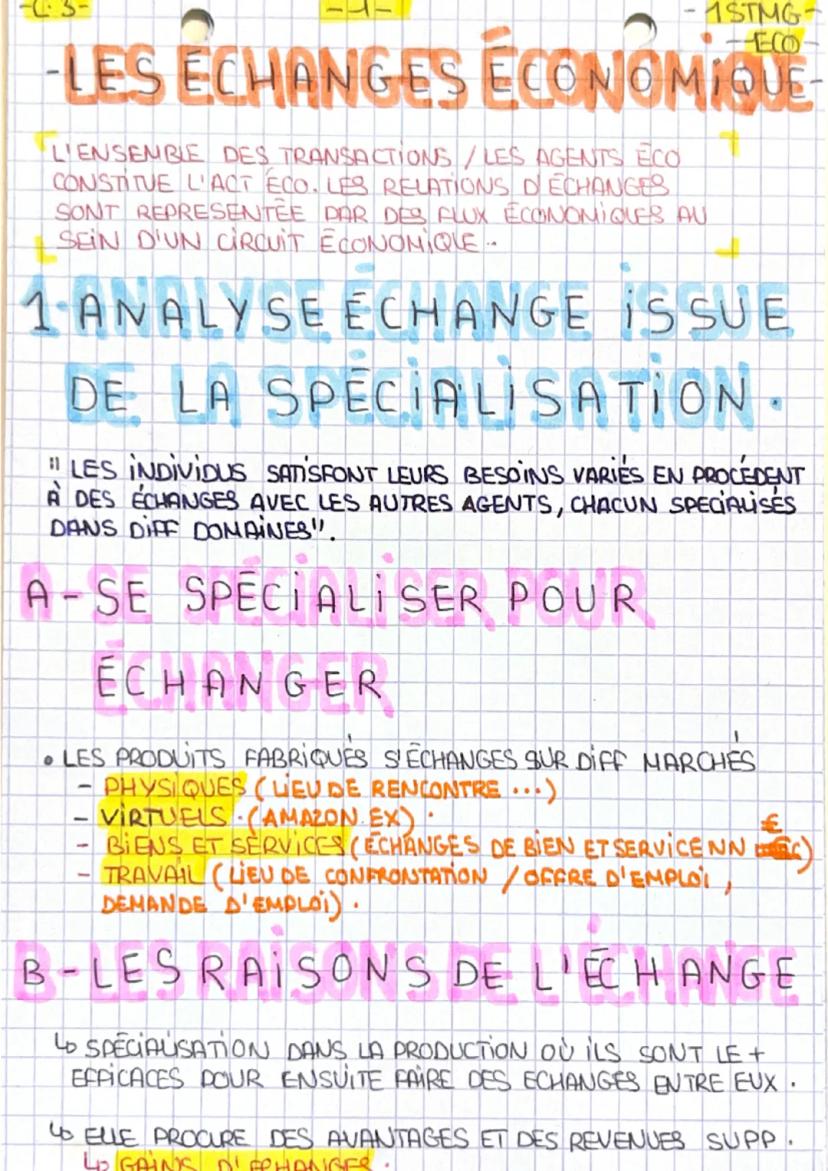 -C.3-
-1-
- 1STMG-
-ECO-
-LES ÉCHANGES ÉCONOMIQUE-
L'ENSEMBLE DES TRANSACTIONS / LES AGENTS ÉCO
CONSTITUE L'ACT ÉCO. LES RELATIONS D'ÉCHANGES
SONT REPRESENTÉE PAR DES FLUX ÉCONOMIQUES AU
SEIN D'UN CIRCUIT ÉCONOMIQUE.
1. ANALYSE ÉCHANGE ISSUE
DE LA SPÉCIALISATION.
" LES INDIVIDUS SATISFONT LEURS BESOINS VARIÉS EN PROCÉDENT
À DES ÉCHANGES AVEC LES AUTRES AGENTS, CHACUN SPECIALISÉS
DANS DIFF DOMAINES".
A - SE SPÉCIALISER POUR
ÉCHANGER
• LES PRODUITS FABRIQUÉS S'ÉCHANGES SUR DIFF MARCHÉS
- PHYSIQUES (LIEU DE RENCONTRE ...)
- VIRTUELS . (AMAZON EX) .
- BIENS ET SERVICES (ÉCHANGES DE BIEN ET SERVICE NN €)
- TRAVAIL (LIEU DE CONFRONTATION / OFFRE D'EMPLOI,
DEMANDE D'EMPLOI) .
B - LES RAISONS DE L'ÉCHANGE
↳ SPÉCIALISATION DANS LA PRODUCTION OÙ ILS SONT LE +
EFFICACES POUR ENSUITE FAIRE DES ECHANGES ENTRE EUX .
↳ ELLE PROCURE DES AVANTAGES ET DES REVENUES SUPP .
↳ GAINS D'ECHANGER .